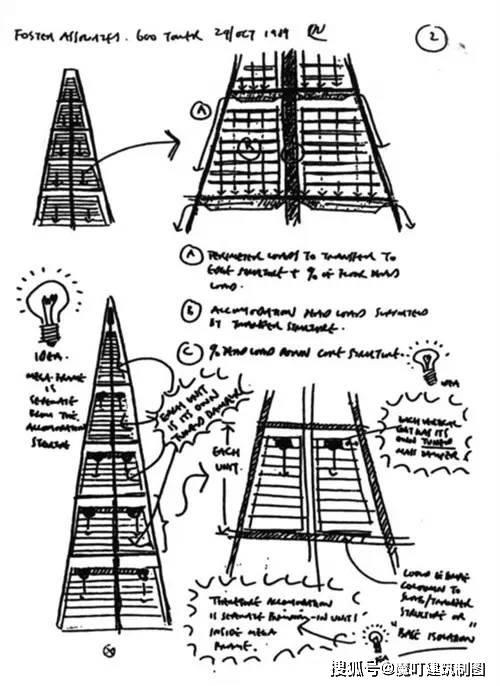 FOSTER ASSOCIATES. 600 TOWER 29/OCT 1989
2
A
B
A PERIMETER LOADS TO TRANSFER TO
EDGE STRUCTURE + % OF FLOOR DEAD
LOAD.
B ACCOMODATION DEAD LOAD SUPPORTED
BY TRANSFER STRUCTURE.
C % DEAD LOAD DOWN CORE STRUCTURE.
IDEA.
MEGA-FRAME
IS
SEPARATE
FROM THE
ACCOMODATION
STRUCTURE
EACH UNIT
IS ITS OWN
TUNED DAMPER
EACH
UNIT.
IDEA
EACH VERTICAL
UNIT HAS ITS
OWN TUNED
MASS DAMPER
THEREFORE ACCOMODATION
IS SEPARATE BUILDING-IN UNITS
INSIDE MEGA
FRAME.
IDEA
COULD BE
COLUMN TO
STRUCTURE OR
"BASE ISOLATION"
搜狐号@魔叮建筑制图